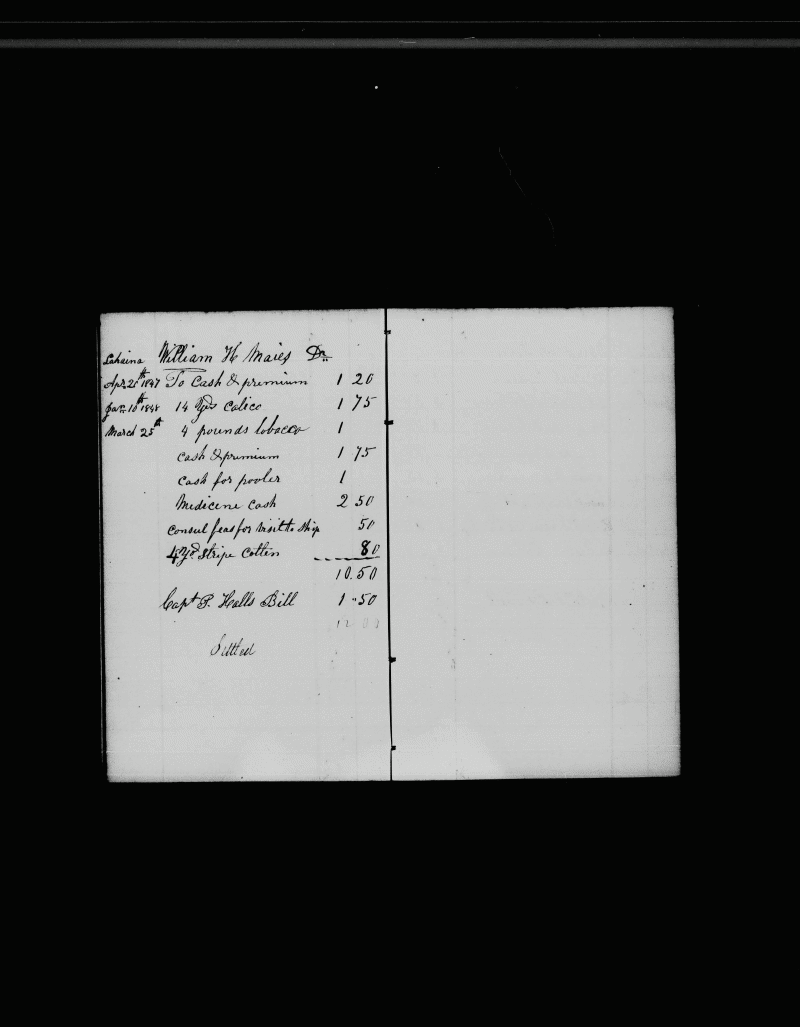 Lahaina William H Maies Dr
Apr 20th 1847 To Cash & premium 1 20
Jan 10th 1848 14 Yds Calico 1 75
March 25th 4 pounds tobacco 1
Cash & premium 1 75
Cash for pooler 1
Medicine Cash 2 50
Consul feas for visit to Ship 50
4 Yd Stripe Cotten 80
10.50
Capt P. Halls Bill 1 50
Settled